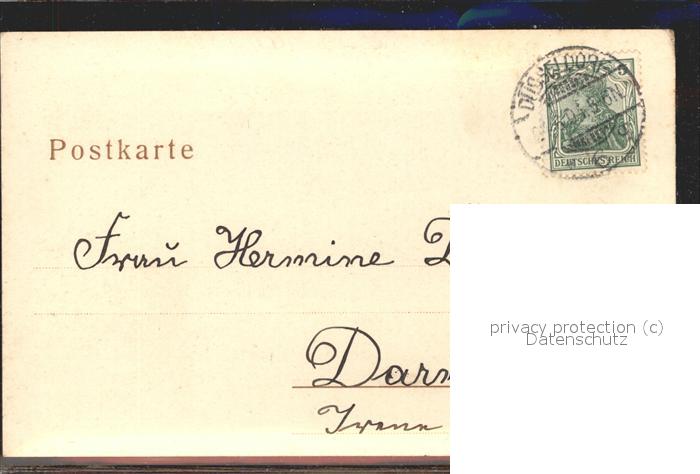 DÜSSELDORF
5
DEUTSCHES REICH
Postkarte
Frau Hermine
privacy protection (c)
Datenschutz
Irene